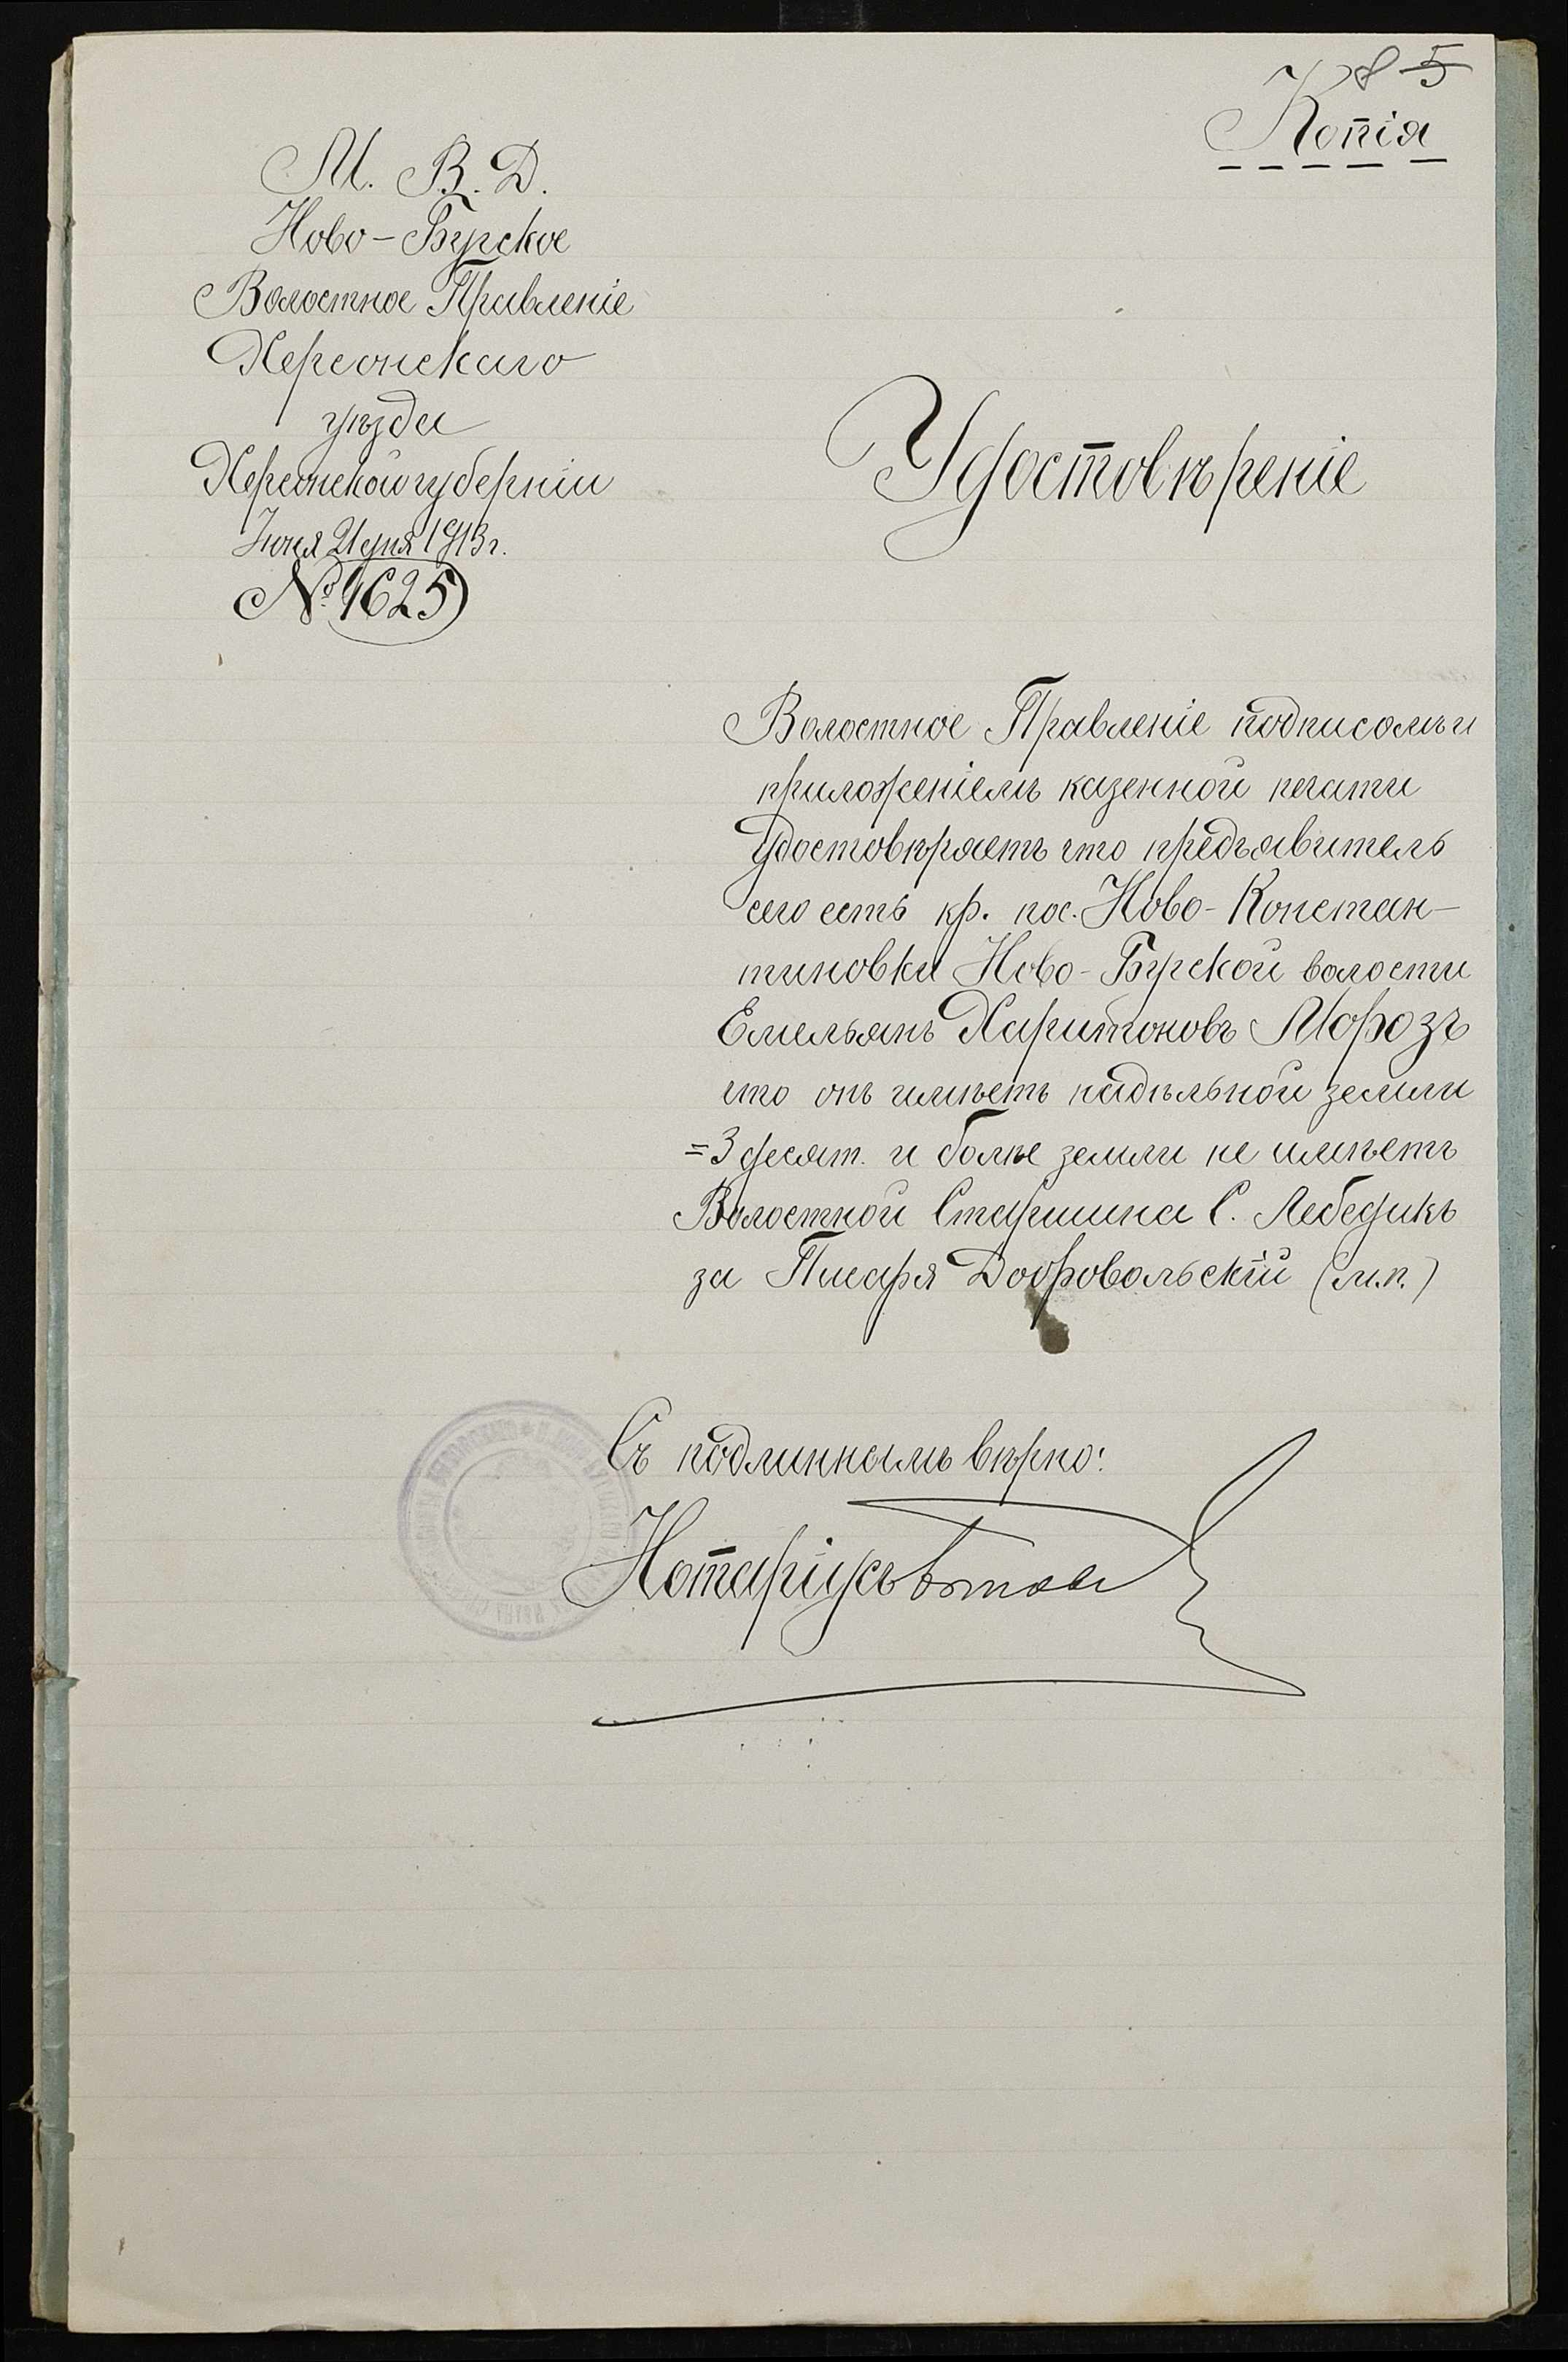 8 5
Копія
М. В. Д.
Ново-Бугское
Волостное Правленіе
Херсонскаго
уѣзда
Херсонской губерніи
Іюня 21 дня 1913 г.
№ 4625
Удостовѣреніе
Волостное Правленіе подписомъ и
приложеніемъ казенной печати
Удостовѣряетъ что предъявитель
сего есть кр. пос. Ново-Констан-
тиновки Ново-Бугской волости
Емельянъ Харитоновъ Морозъ
что онъ имѣетъ надѣльной земли
=3 десят. и болѣе земли не имѣетъ
Волостной Старшина С. Лебедикъ
за Писаря Добровольскій (м.п.)
Съ подлиннымъ вѣрно:
Нотаріусъ